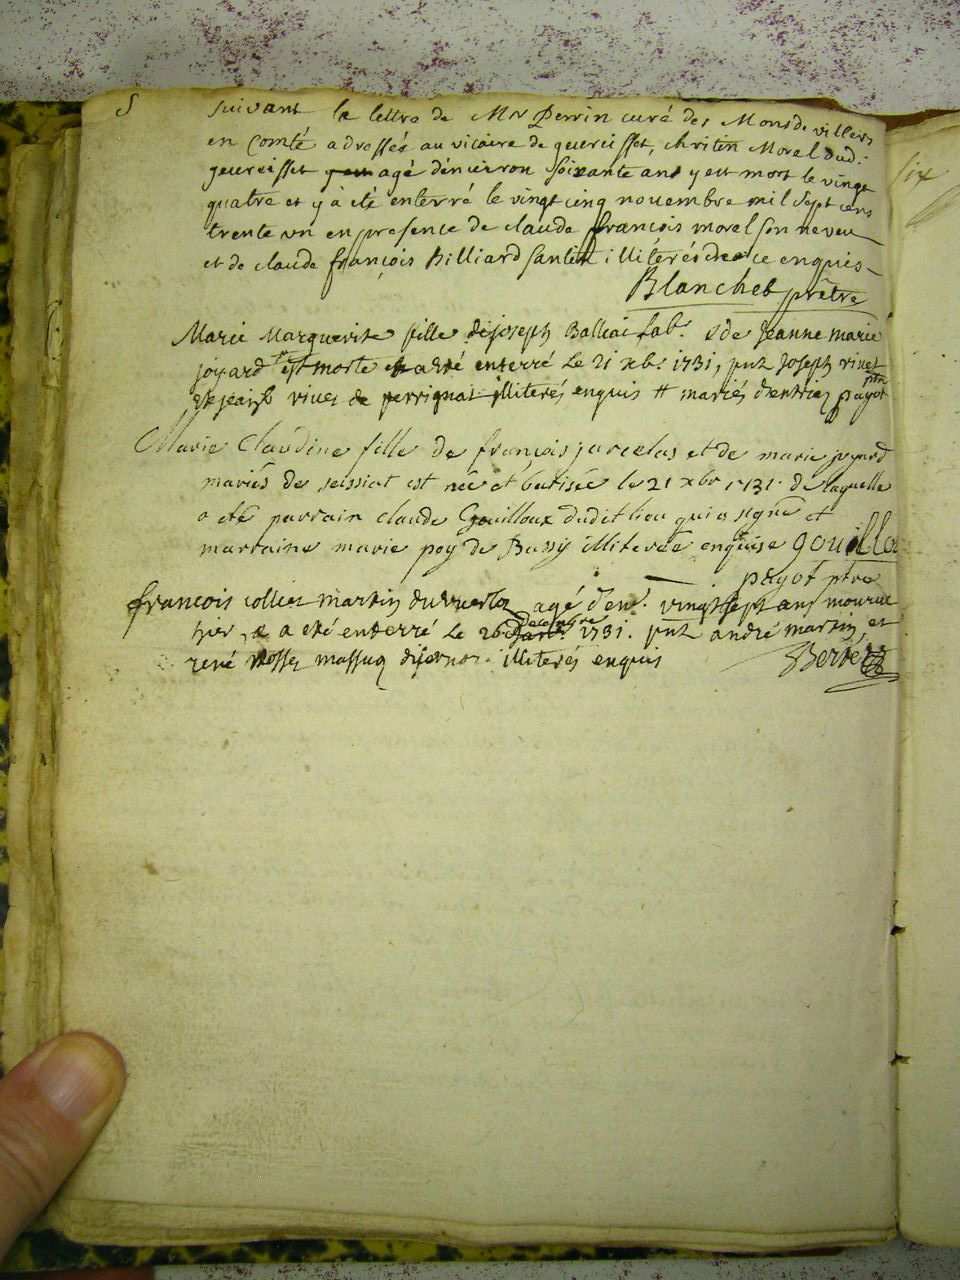 S
suivant la lettre de Mr Perrin curé des Mons de villers
en Comté adressée au vicaire de geureisset, chritin Morel dud.
geureisset agé d'environ soixante ans y est mort le vingt
quatre et y à été enterré le vingt cinq novembre mil sept cens
trente un en presence de claude françois morel son neveu
et de claude françois Billiard illiterés de ce enquis
Blanchet prêtre
Marie Marguerite fille de joseph Balliai lab. & de Jeanne marie
joyard est morte et a été enterré Le 21 xbr. 1731, pnt Joseph vinet
et vinet de perrignat illiterés enquis # mariés payot ptre
Marie Claudine fille de françois jarcelas et de marie joyard
mariés de seissiat est née et batisée le 21 xbr 1731. de laquelle
a eté parrain claude Gouilloux dudit lieu qui a signé et
marraine marie poy de Bussy illiterée enquise gouillo
payot ptre
francois collier martin agé d'en. vingt sept ans mourut
hier, & a eté enterré Le 26 decembre 1731. pnt andré martin, et
rené massuq illiterés enquis
six